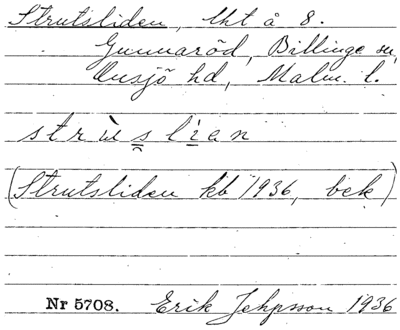 Strutsliden, lht å 8.
Gunnaröd, Billinge sn,
Onsjö hd, Malm. l.
strùs̯li̲an
(Strutsliden kb 1936, bek)
Nr 5708. Erik Jepsson 1936